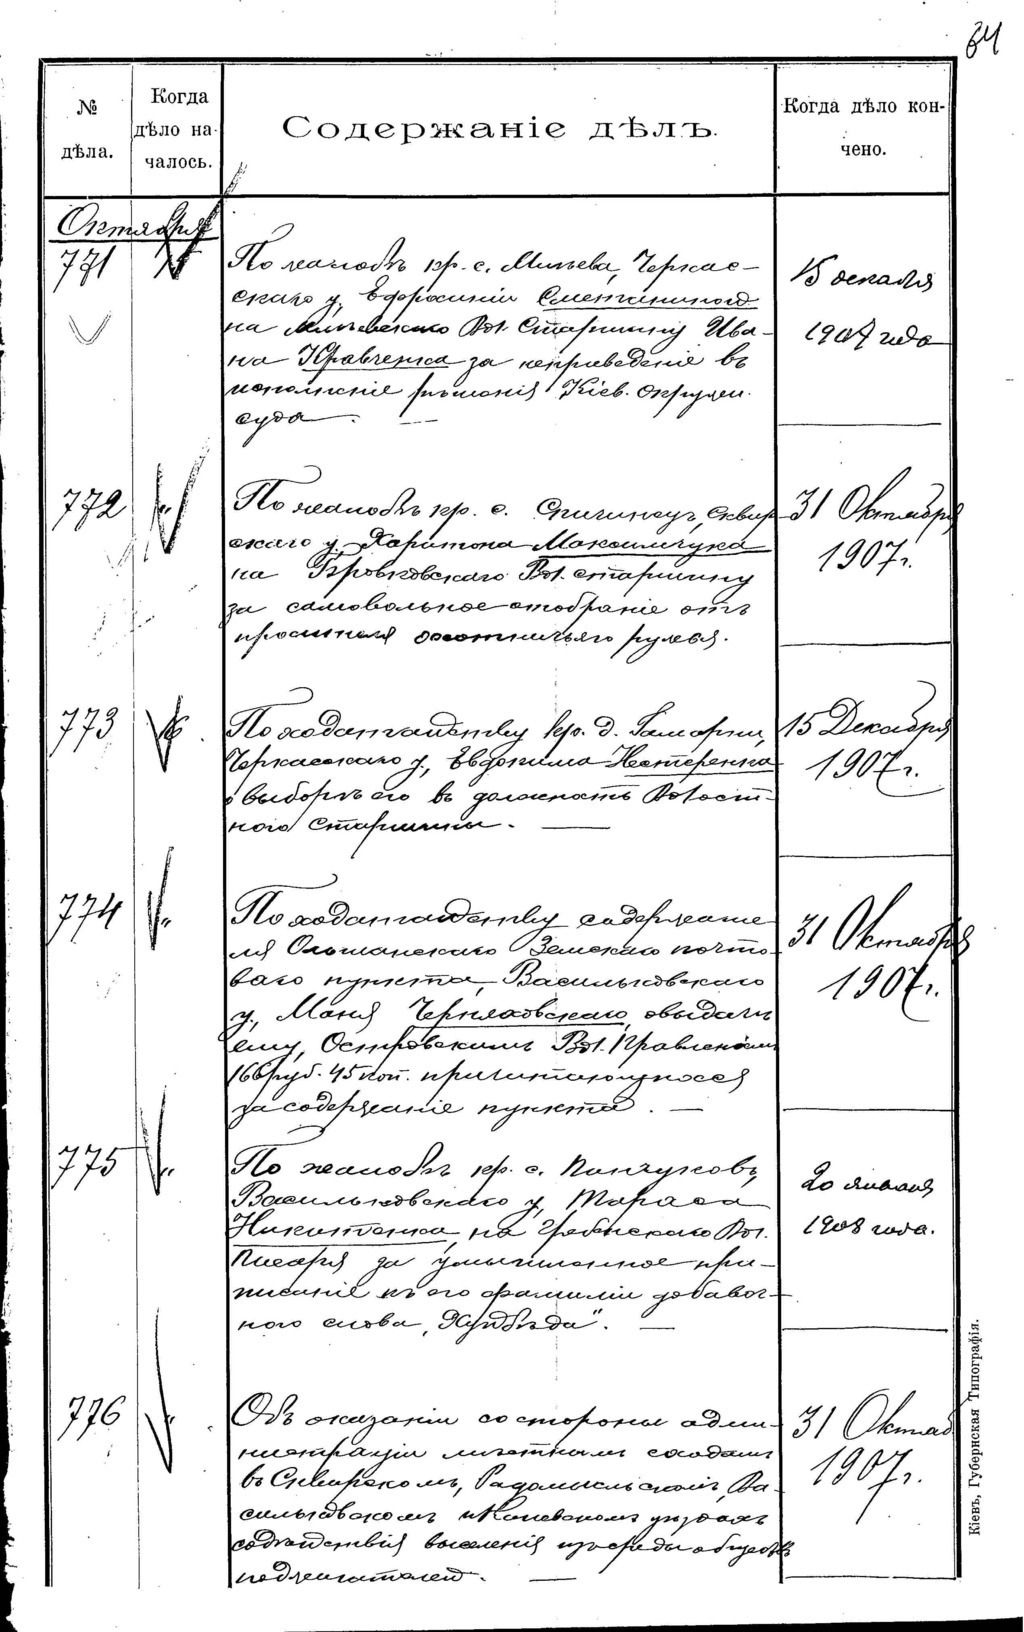 64
№ дѣла.
Когда дѣло началось.
Содержаніе дѣлъ.
Когда дѣло кончено.
Октября
771
По жалобѣ кр. с. Млѣева, Черкас-
скаго у. Ефросиніи Сметаниной
на Млѣевскаго Вол. Старшину Ива-
на Кравченка за неприведеніе въ
исполненіе рѣшенія Кіев. Окружн.
суда.
15 декабря
1907 года
772
По жалобѣ кр. с. Спичинецъ, Сквир
скаго у. Харитона Максимчука
на Бровковскаго Вол. старшину
за самовольное отобраніе отъ
просителя охотничьяго ружья.
31 Октября
1907 г.
773
По ходатайству кр. д. Гамарни,
Черкасскаго у., Евдокима Нестеренка
о выборѣ его въ должность Волост-
ного Старшины.
15 Декабря
1907 г.
774
По ходатайству содержате
ля Ольшанскаго Земскаго почто
ваго пункта, Васильковскаго
у., Черняховскаго, о выдачѣ
ему, Островскимъ Вол. Правленіемъ
166 руб. 45 коп. причитающихся
за содержаніе пункта.
31 Октября
1907 г.
775
По жалобѣ кр. с. Пинчуковъ,
Васильковскаго у., Тараса
Никитенка, на Гребенскаго Вол.
Писаря за умышленное при-
писаніе къ его фамиліи добавоч-
ного слова
20 января
1908 года.
776
Объ оказаніи со стороны адми-
нистраціи мѣстнымъ сходамъ
въ Сквирскомъ, Радомысльскомъ, Ва-
сильковскомъ и Каневскомъ уѣздахъ
содѣйствія выселенія изъ среды обществъ
поджигателей.
31 Октяб
1907 г.
Кіевъ, Губернская Типографія.